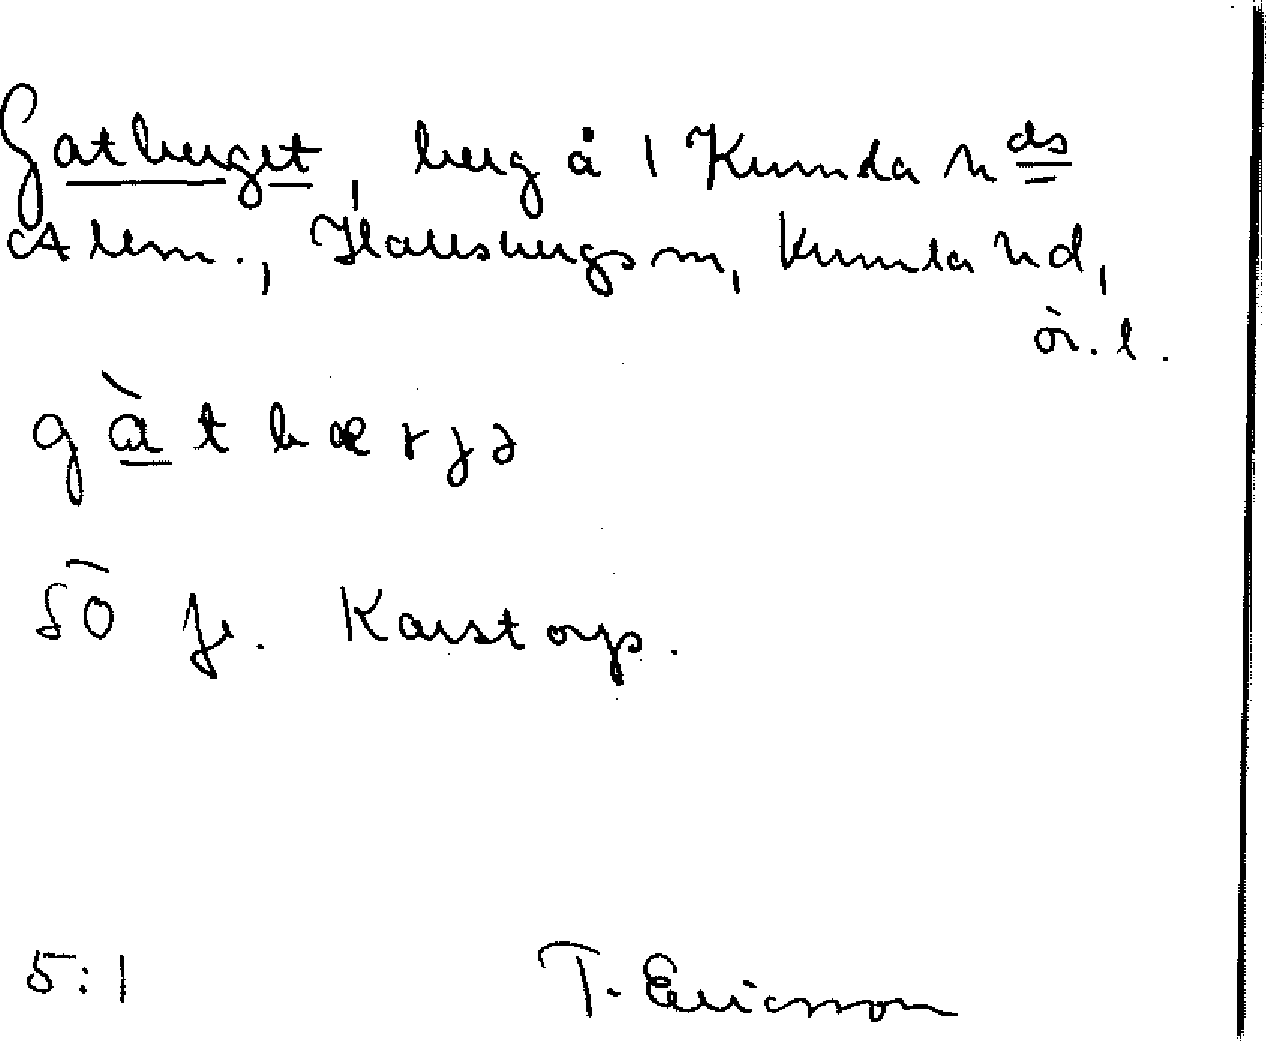 Gatberget, berg å 1 Kumla hds
Alem., Hallsbergs sn, Kumla hd,
ör. l.
gàtbærjə
SO fr. Karstorp.
5:1 T. Ericsson